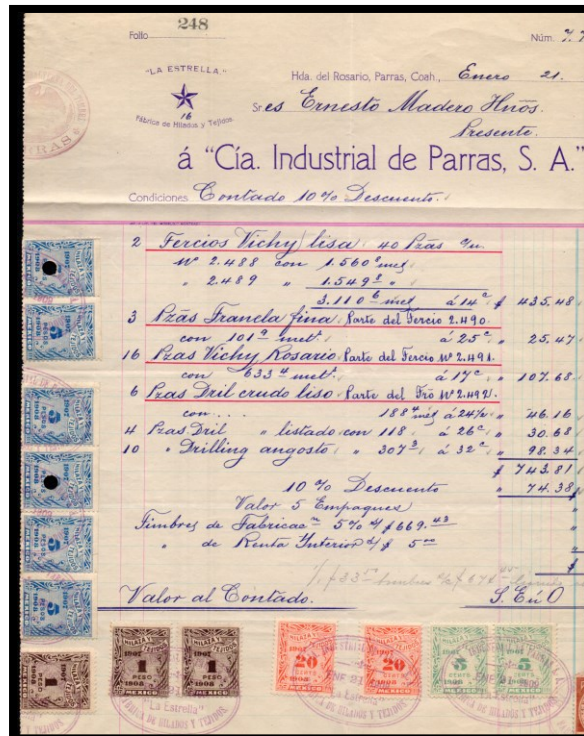 Folio 248
Núm. 7.7
"LA ESTRELLA."
16
Fábrica de Hilados y Tejidos.
Hda. del Rosario, Parras, Coah., Enero 21.
Sres Ernesto Madero Hnos.
Presente.
á "Cía. Industrial de Parras, S. A."
Condiciones Contado 10% Descuento.
2 Tercios Vichy lisa 40 Pzas c/u.
Nº 2.488 con 1.560 9 met
" 2.489 " 1.549 "
3.110 6 met á 14 c $ 435.48
3 Pzas Franela fina Parte del Tercio 2.490.
con 101 9 met. á 25 c " 25.47
16 Pzas Vichy Rosario Parte del Tercio Nº 2.491.
con 633 4 met. á 17 c " 107.68
6 Pzas Dril crudo liso Parte del Tro Nº 2.492.
con... 188 4 met á 24½ " 46.16
4 Pzas Dril " listado con 118 á 26 c " 30.68
10 " Drilling angosto " 307 3 á 32 c " 98.34
$ 743.81
10% Descuento " 74.38
Valor 5 Empaques "
Timbres de Fabricas 5% s/ $669.43 "
" de Renta Interior s/ $ 5 00 "
$
Valor al Contado. S. E ú O
5 PESOS
1 PESO
1907 1908
HILAZA Y TEJIDOS
MEXICO
20 CENTS
5 CENTS
"La Estrella"
FABRICA DE HILADOS Y TEJIDOS
PARRAS